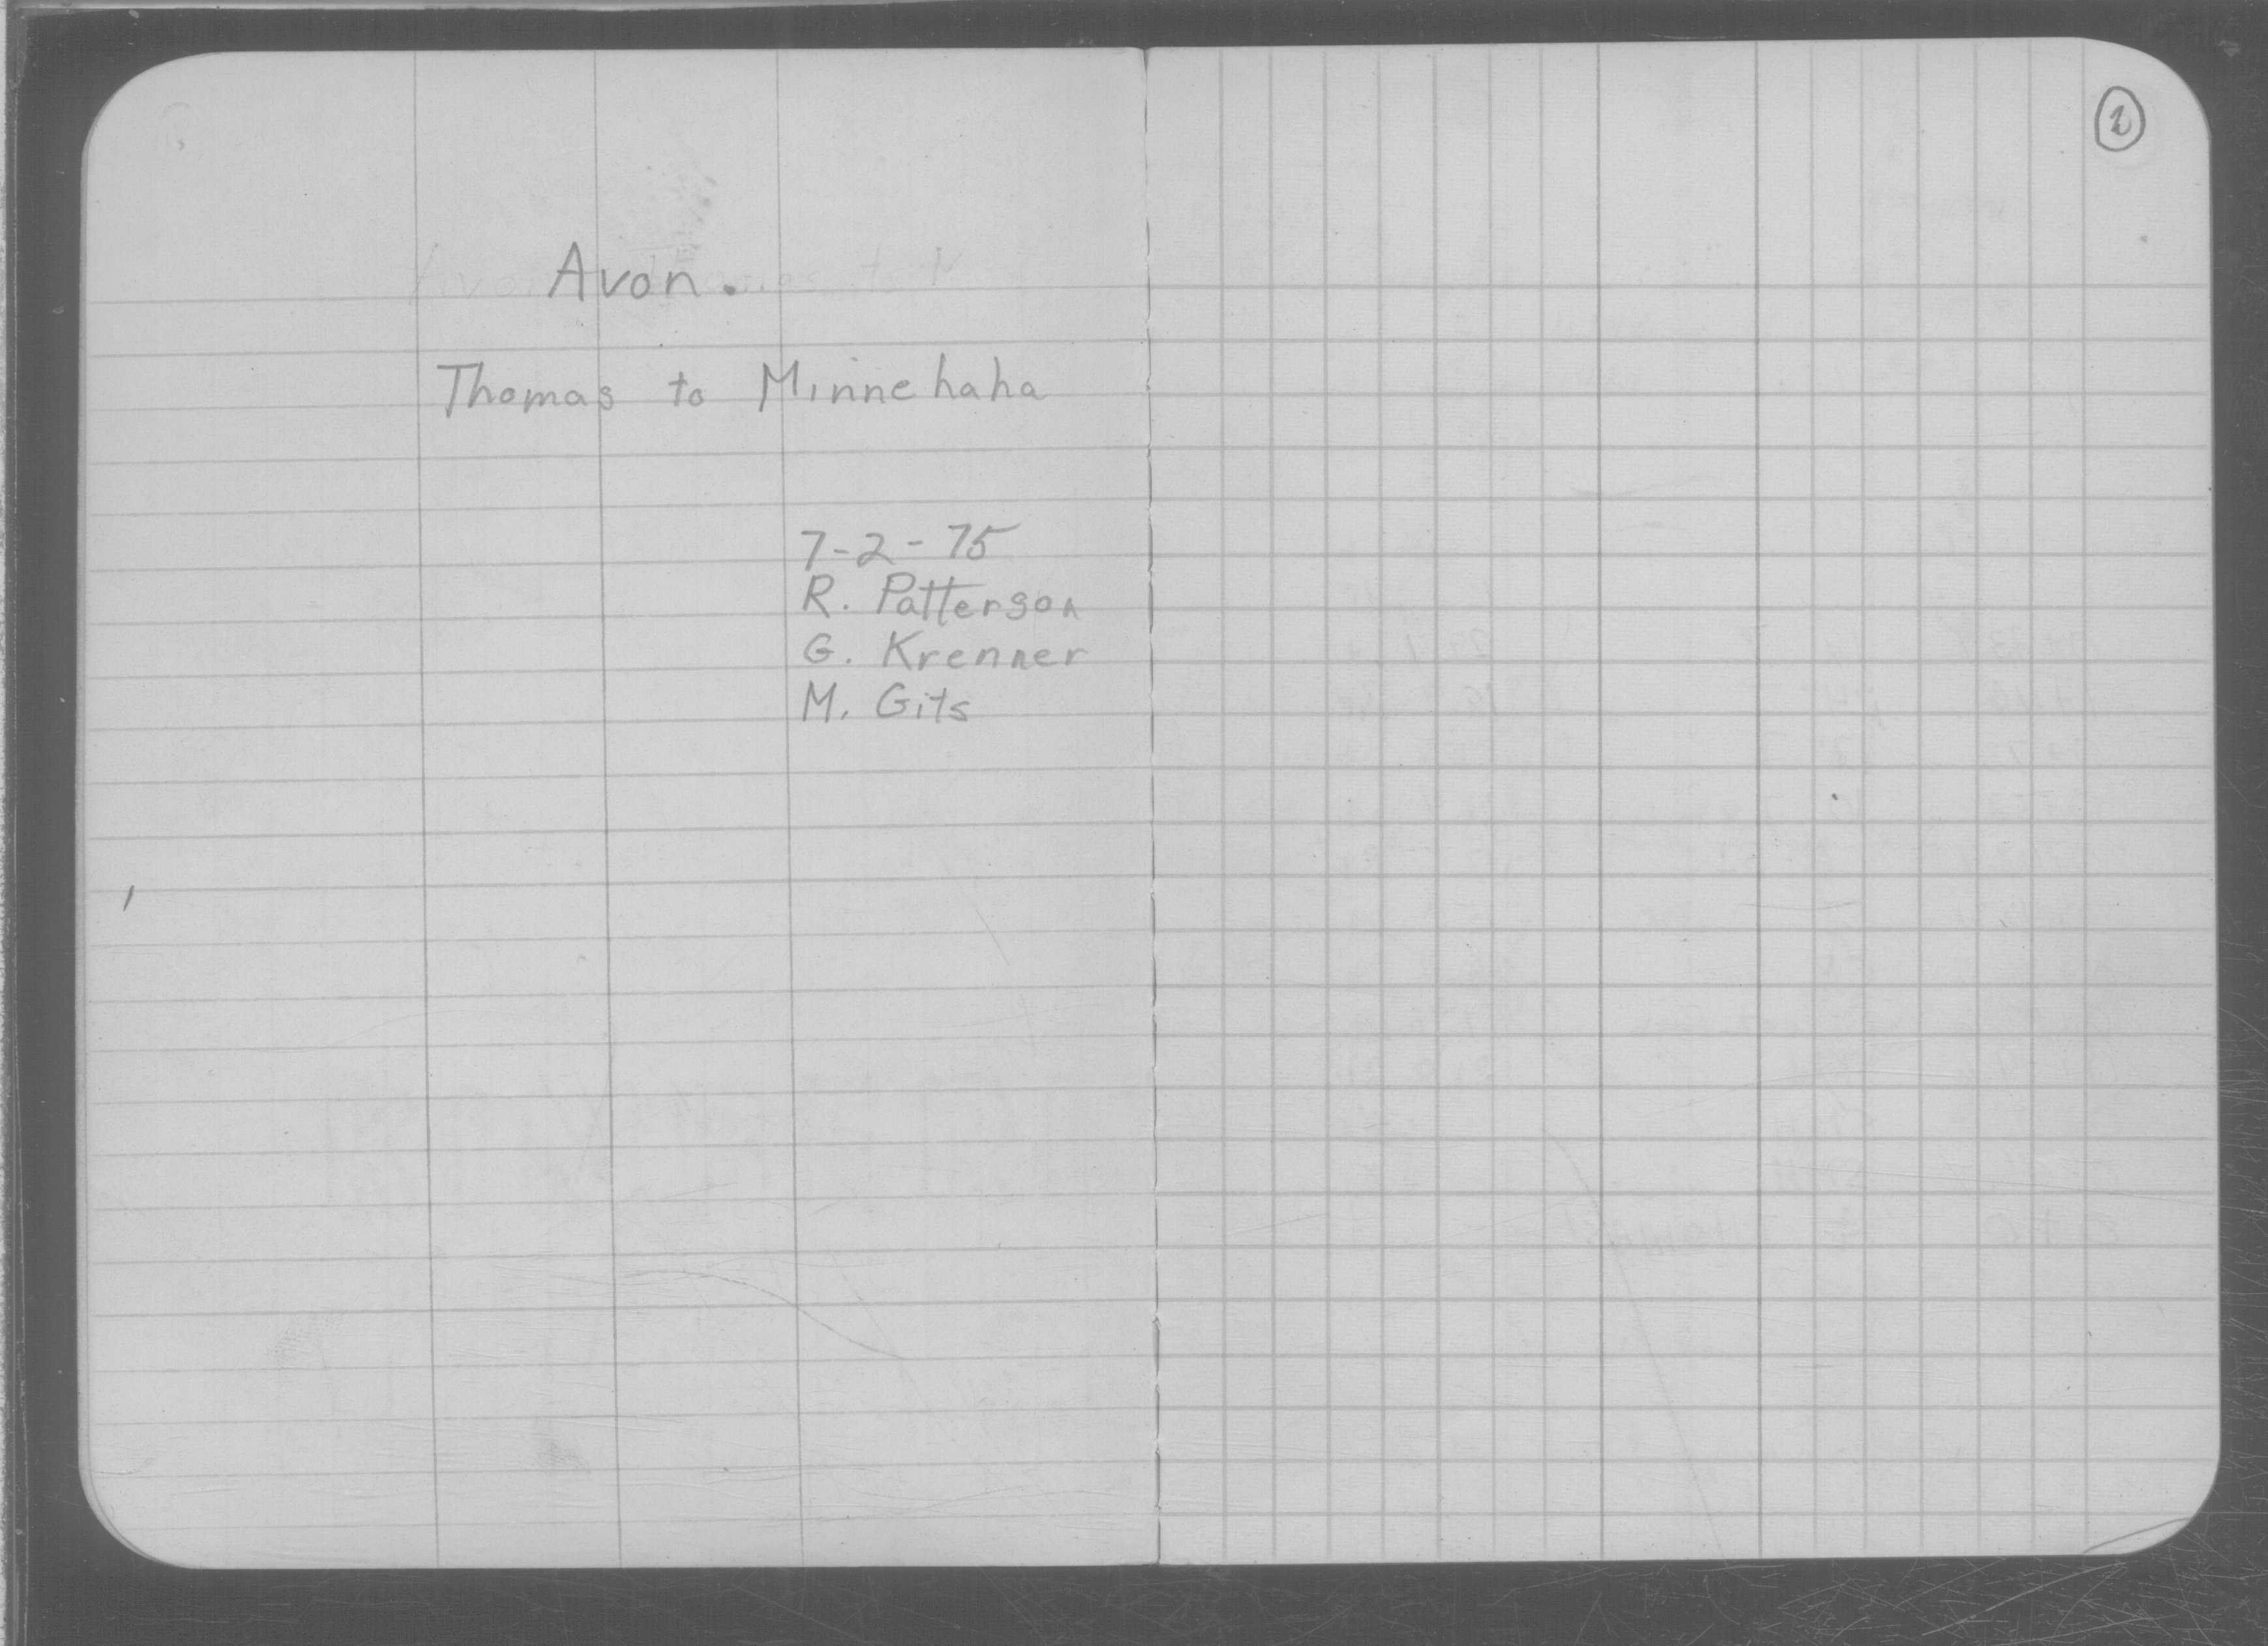 Avon.
Thomas to Minnehaha
7-2-75
R. Patterson
G. Krenner
M. Gits
2